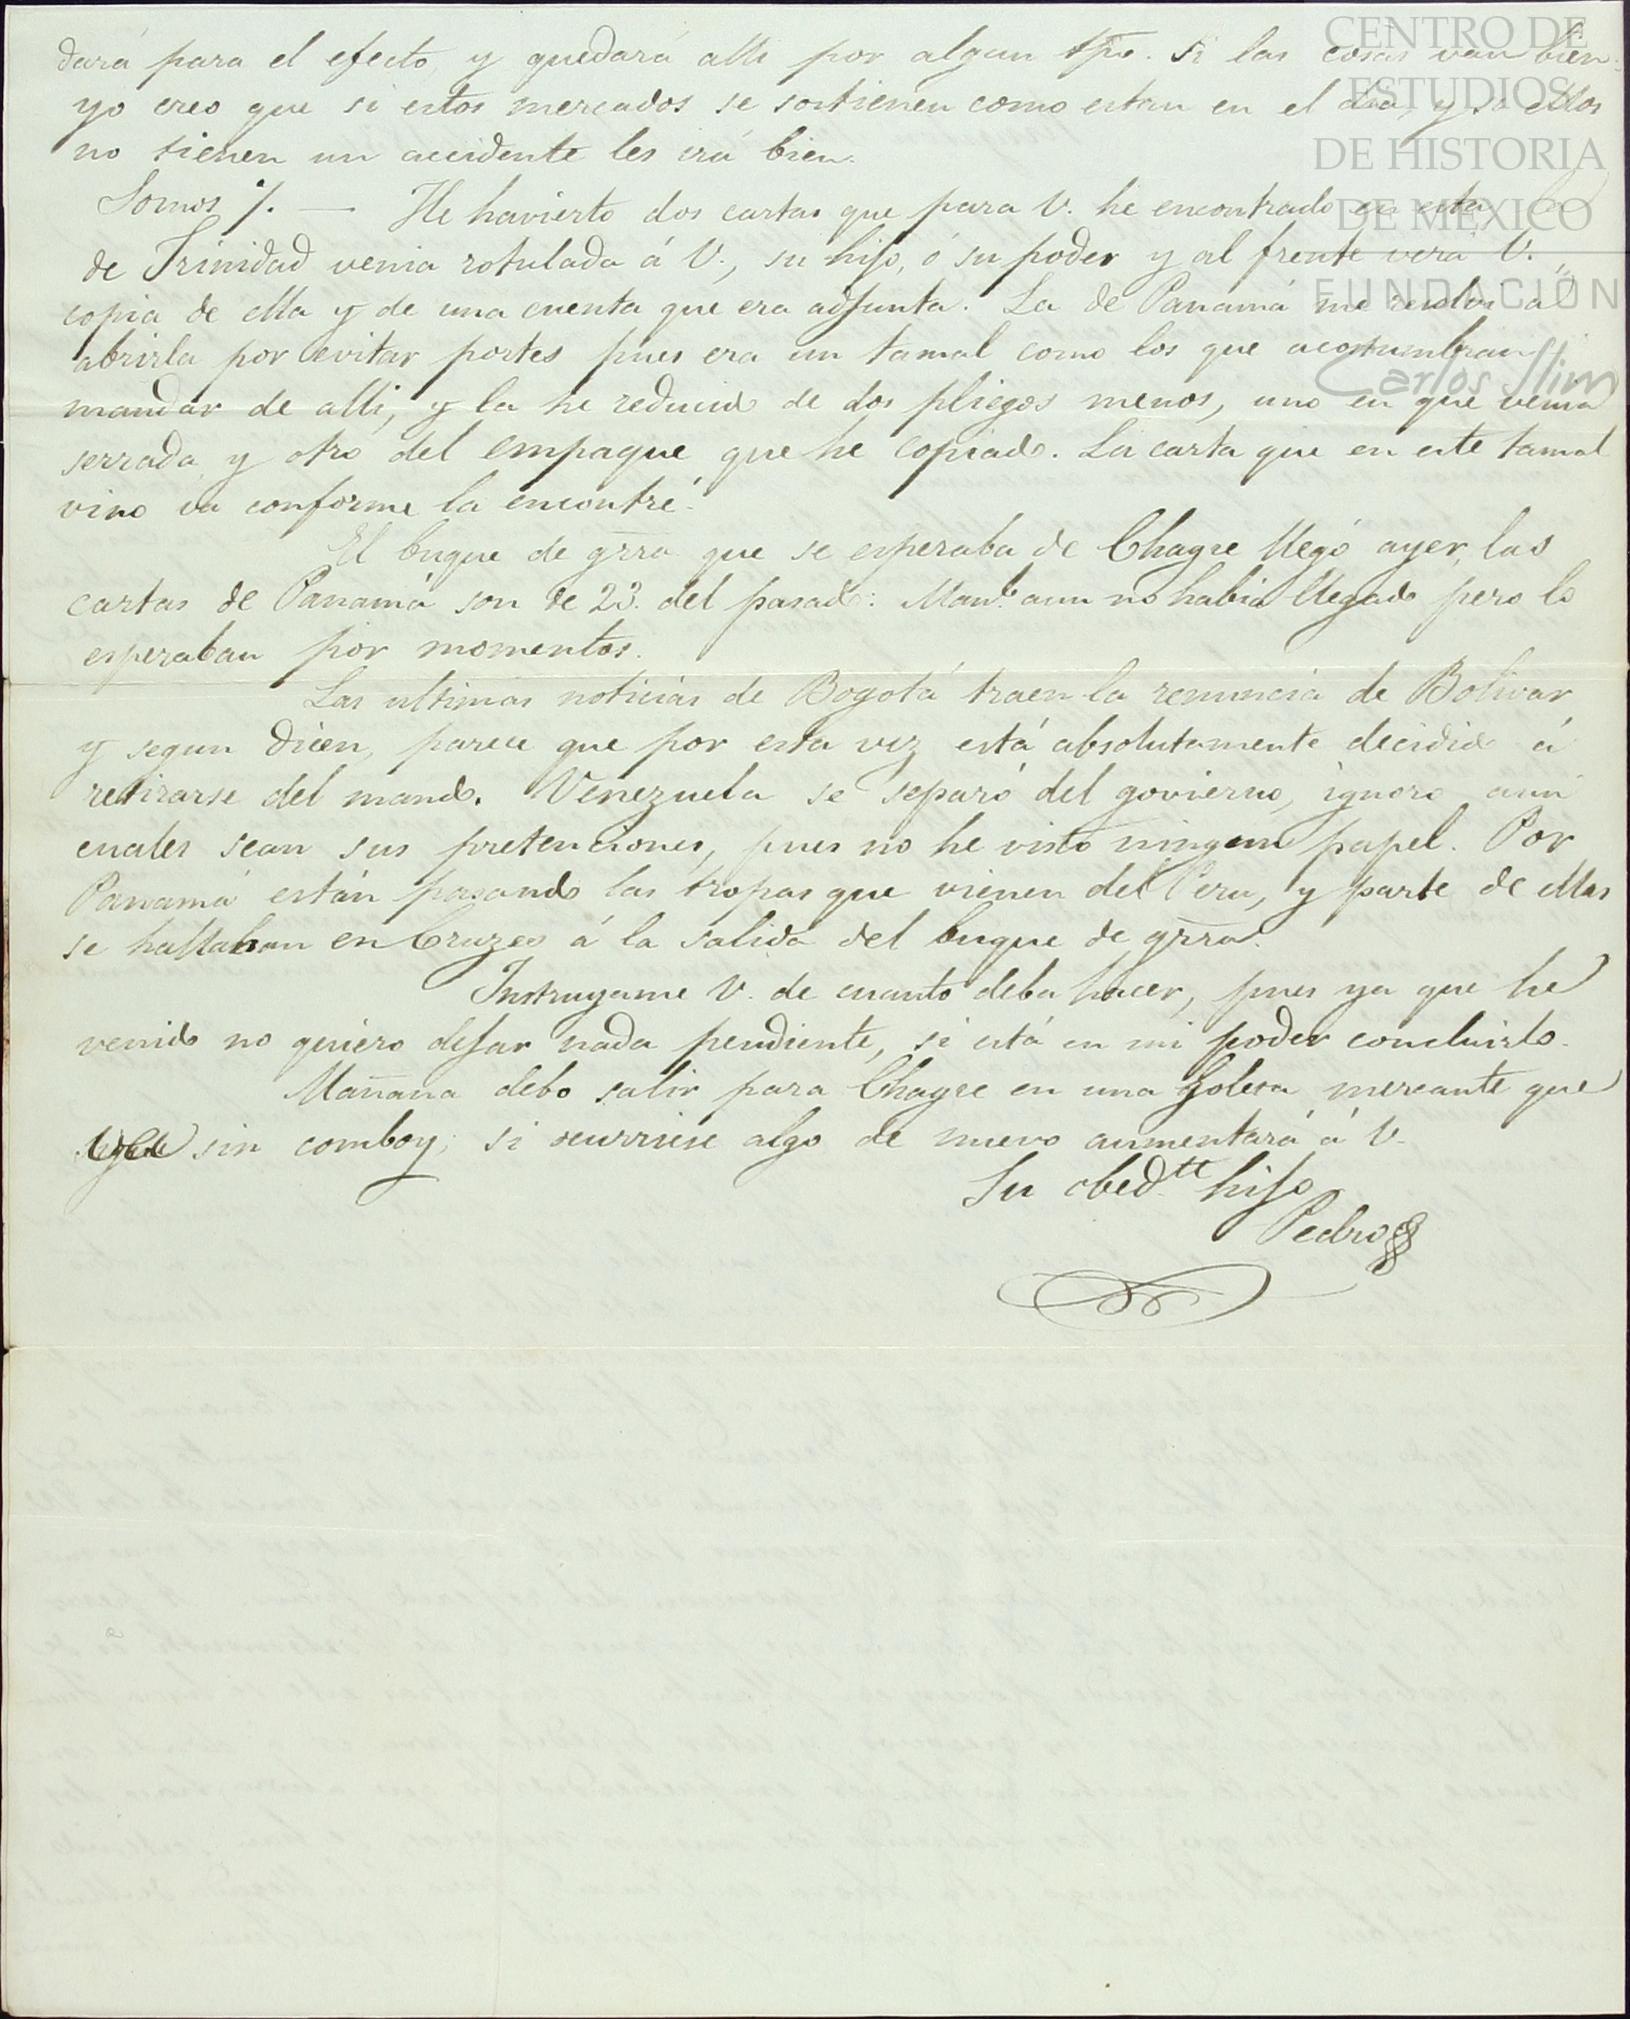 CENTRO DE
ESTUDIOS
DE HISTORIA
DE MEXICO
FUNDACIÓN
Carlos Slim
dará para el efecto, y quedará alli por algun tpo. Si las cosas van bien
yo creo que si estos mercados se sostienen como estan en el dia, y si ellos
no tienen un accidente les irá bien.
Somos 7. — He havierto dos cartas que para V. he encontrado en esta, la
de Trinidad venia rotulada á V., su hijo, ó su poder y al frente verá V.
copia de ella y de una cuenta que era adjunta. La de Panamá me resolví a
abrirla por evitar portes pues era un tamal como los que acostumbran
mandar de alli, y la he reducido de dos pliegos menos, uno en que venia
serrada y otro del empaque que he copiado. La carta que en este tamal
vino va conforme la encontré.
El buque de grra que se esperaba de Chagre llegó ayer, las
cartas de Panamá son de 23. del pasado: Manl. aun no habia llegado pero lo
esperaban por momentos.
Las ultimas noticias de Bogotá traen la renuncia de Bolivar
y segun dicen, parece que por esta vez está absolutamente decidido á
retirarse del mando. Venezuela se separó del govierno, ignoro aun
cuales sean sus pretenciones, pues no he visto ningun papel. Por
Panamá están pasando las tropas que vienen del Peru, y parte de ellas
se hallaban en Cruzes á la salida del buque de grra.
Instruyame V. de cuanto deba hacer, pues ya que he
venido no quiero dejar nada pendiente, si está en mi poder concluirlo.
Mañana debo salir para Chagre en una Goleta mercante que
sin comboy; si ocurriese algo de nuevo aumentará á V.
Su obedte hijo
Pedro